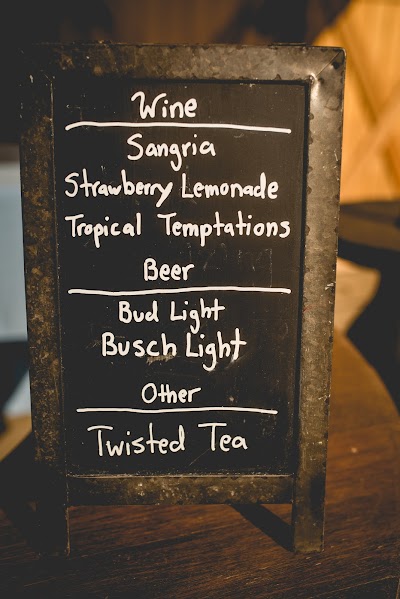 Wine
Sangria
Strawberry Lemonade
Tropical Temptations
Beer
Bud Light
Busch Light
Other
Twisted Tea